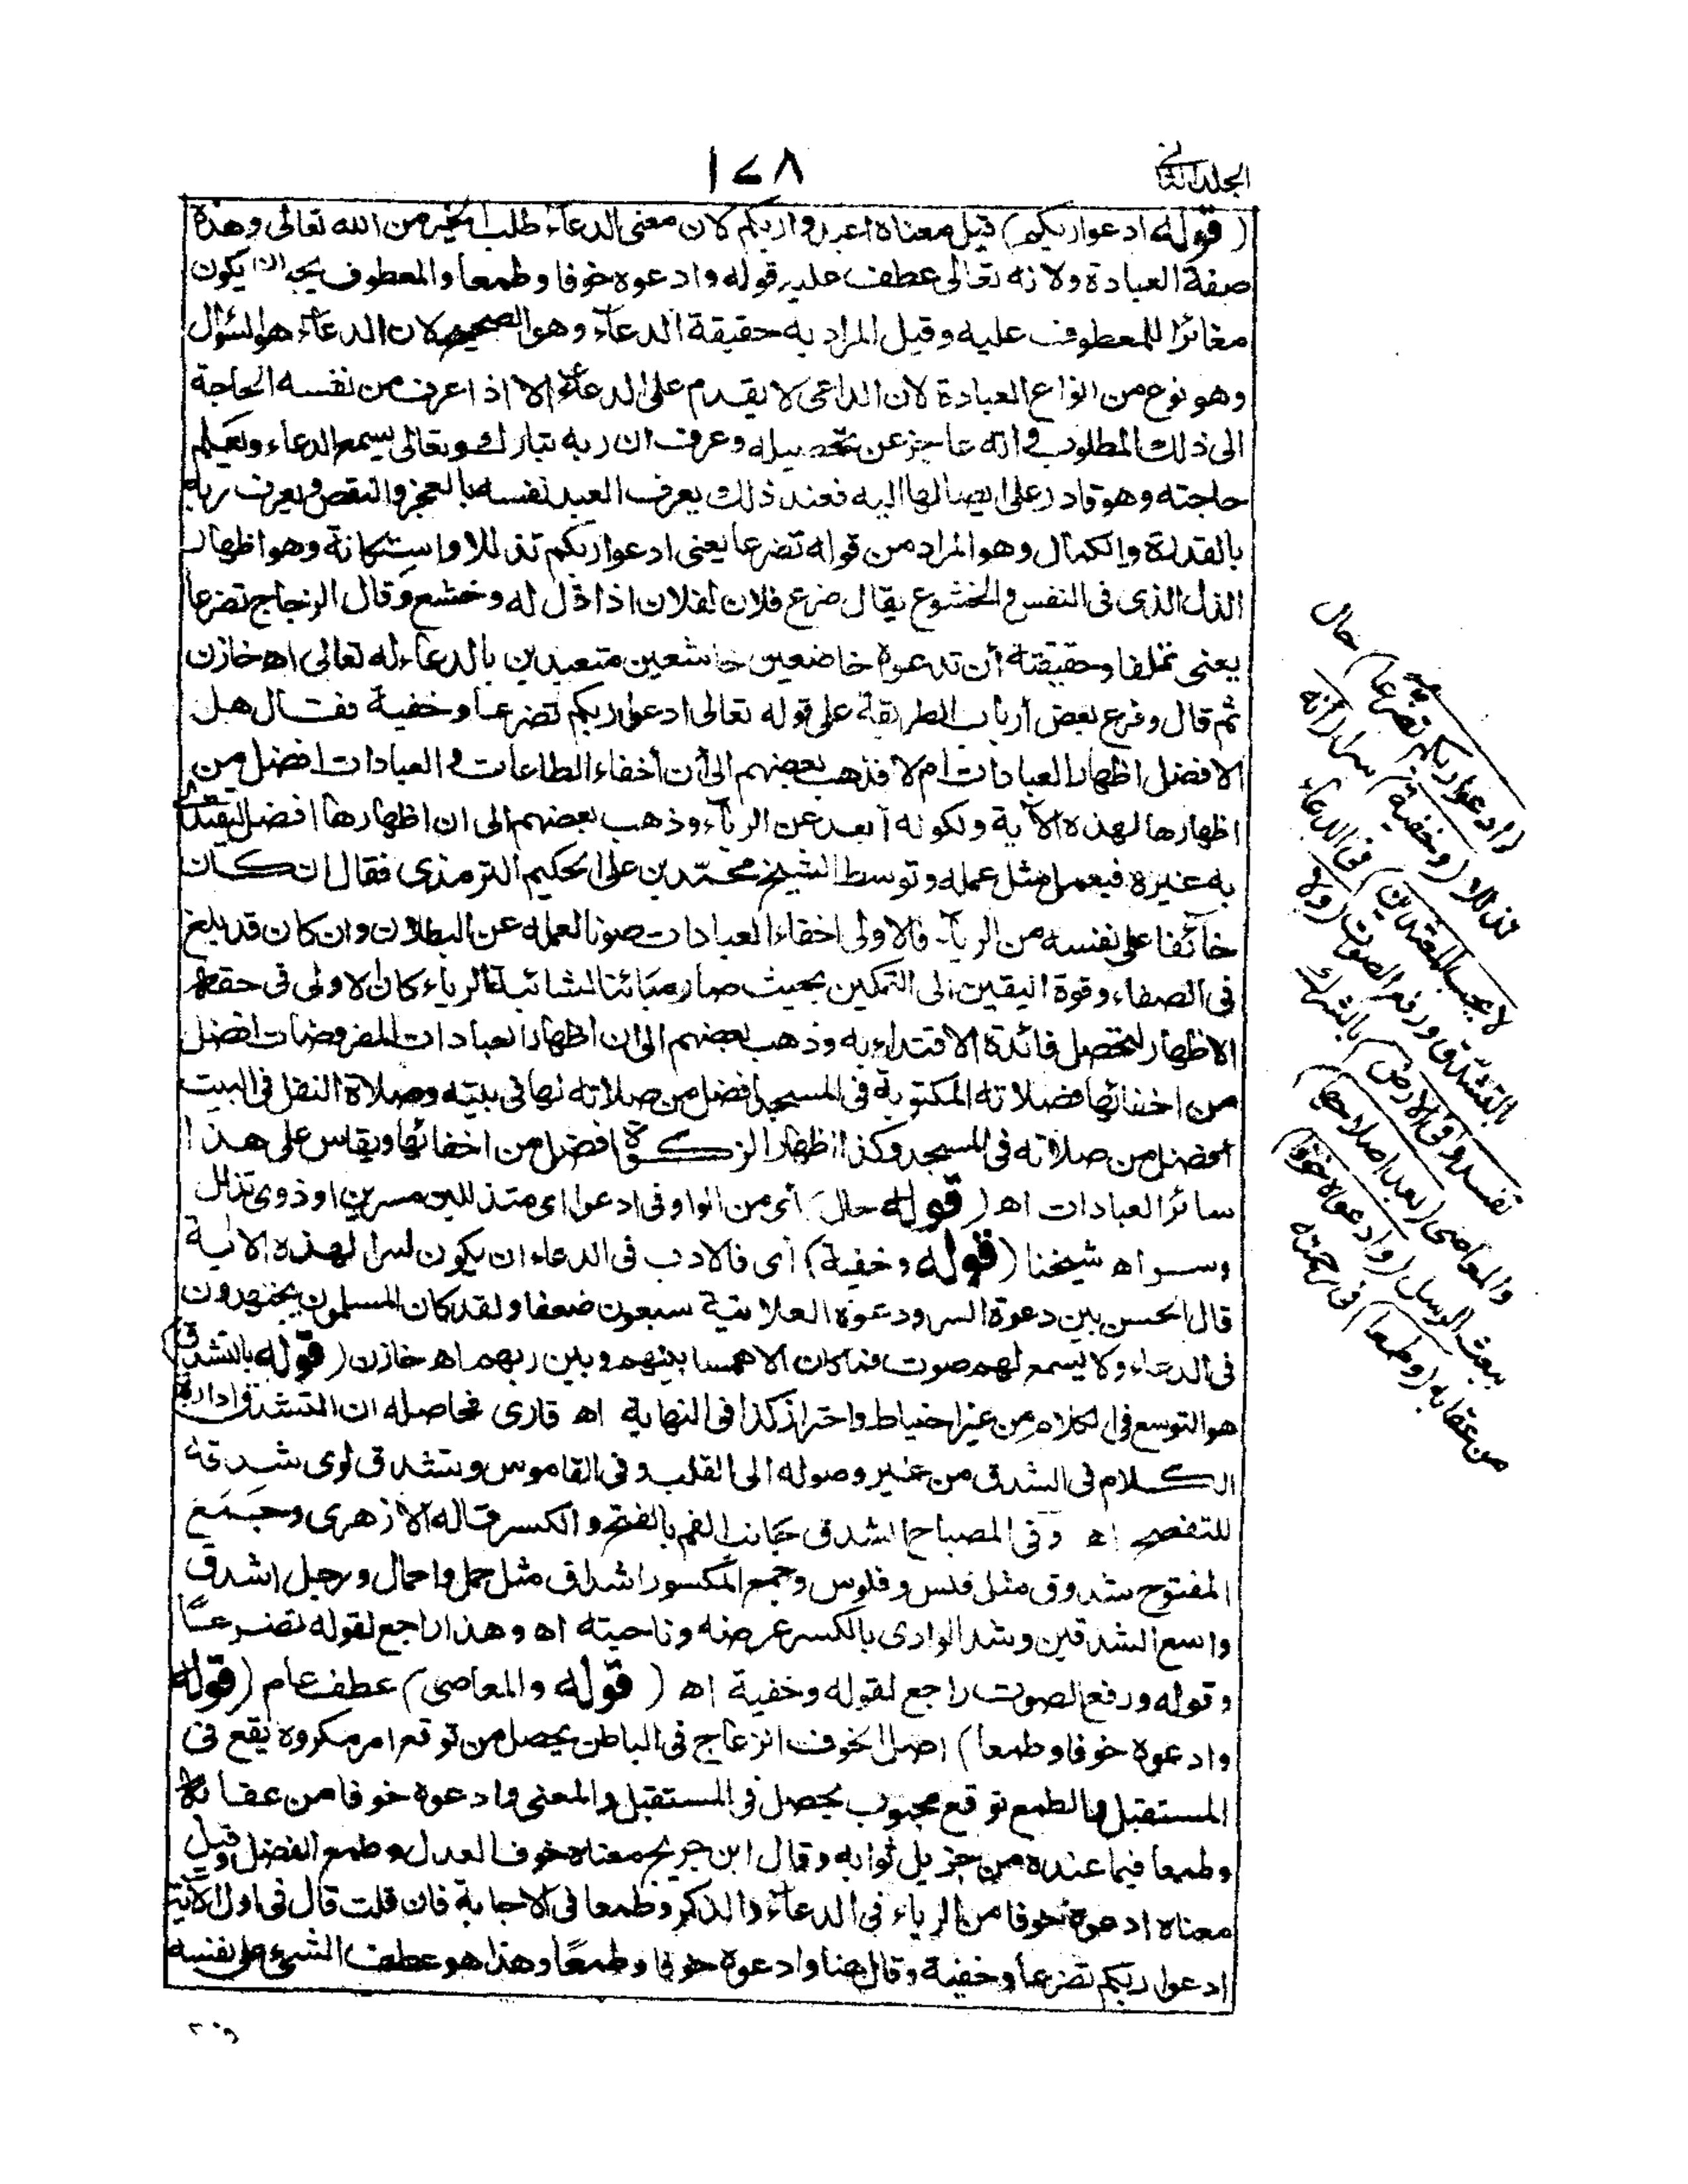 الجلد الثاني
١٧٨
(قوله ادعوا ربكم) قيل معناه اعبدوا ربكم لان معنى الدعآء طلب الخير من الله تعالى وهذه
صفة العبادة ولانه تعالى عطف عليه قوله وادعوه خوفا وطمعا والمعطوف يجب ان يكون
مغائرا للمعطوف عليه وقيل المراد به حقيقة الدعآء وهو الصحيح لان الدعآء هو السؤال
وهو نوع من انواع العبادة لان الداعى لا يقدم على الدعآء الا اذا عرف من نفسه الحاجة
الى ذلك المطلوب وانه عاجز عن تحصيله وعرف ان ربه تبارك وتعالى يسمع الدعاء ويعلم
حاجته وهو قادر على ايصالها اليه فعند ذلك يعرف العبد نفسه بالعجز والنقص ويعرف ربه
بالقدرة والكمال وهو المراد من قوله تضرعا يعنى ادعوا ربكم تذللا واستكانة وهو اظهار
الذل الذى فى النفس والخشوع يقال ضرع فلان لفلان اذا ذل له وخشع وقال الزجاج تضرعا
يعنى تملقا وحقيقته أن تدعوه خاضعين خاشعين متعبدين بالدعاء له تعالى اه خازن
ثم قال وفرع بعض أرباب الطريقة على قوله تعالى ادعوا ربكم تضرعا وخفية فقال هل
الافضل اظهار العبادات ام لا فذهب بعضهم الى أن أخفاء الطاعات و العبادات افضل من
اظهارها لهذه الآية ولكونه أبعد عن الريآء وذهب بعضهم الى ان اظهارها افضل ليقتدى
به غيره فيعمل مثل عمله وتوسط الشيخ محمد بن على الحكيم الترمذى فقال ان كان
خآئفا على نفسه من الريآء فالاولى اخفاء العبادات صونا لعمله عن البطلان وان كان قد بلغ
فى الصفاء وقوة اليقين الى التمكين بحيث صار مبائنا لشائبة الرياء كان الاولى فى حقه
الاظهار لتحصل فائدة الاقتداء به وذهب بعضهم الى ان اظهار العبادات المفروضات افضل
من اخفائها فصلاته المكتوبة فى المسجد افضل من صلاته لها فى بيته وصلاة النفل فى البيت
افضل من صلاته فى المسجد وكذا اظهار الزكوة افضل من اخفائها ويقاس على هذا
سائر العبادات اه (قوله حال) أى من الواو فى ادعوا اى متذللين مسرين او ذوى تذلل
وسر اه شيخنا (قوله وخفية) أى فالادب فى الدعاء ان يكون سرا لهذه الاية
قال الحسن بين دعوة السر ودعوة العلانية سبعون ضعفا ولقد كان المسلمون يجتهدون
فى الدعاء ولا يسمع لهم صوت فما كان الا همسا بينهم وبين ربهم اه خازن (قوله بالتشدق)
هو التوسع فى الكلام من غير احتياط واحتراز كذا فى النهاية اه قارى فحاصله ان التشدق ادارة
الكلام فى الشدق من غير وصوله الى القلب وفى القاموس وتشدق لوى شدقه
للتفصح اه وفى المصباح الشدق جانب الفم بالفتح و الكسر قاله الازهرى وجمع
المفتوح شدوق مثل فلس وفلوس وجمع المكسور اشداق مثل حمل واحمال ورجل اشدق
واسع الشدقين وشد الوادى بالكسر عرضه وناحيته اه وهذا راجع لقوله تضرعا
وقوله ورفع الصوت راجع لقوله وخفية اه (قوله والمعاصى) عطف عام (قوله
وادعوه خوفا وطمعا) اصل الخوف انزعاج فى الباطن يحصل من توقع امر مكروه يقع فى
المستقبل والطمع توقع محبوب يحصل فى المستقبل والمعنى وادعوه خوفا من عقابه
وطمعا فيما عنده من جزيل ثوابه وقال ابن جريج معناه خوف العدل وطمع الفضل وقيل
معناه ادعوه خوفا من الرياء فى الدعآء والذكر وطمعا فى الاجابة فان قلت قال فى اول الآية
ادعوا ربكم تضرعا وخفية وقال هنا وادعوه خوفا وطمعا وهذا هو عطف الشىء على نفسه
(ادعوا ربكم تضرعا) حال
تذللا (وخفية) سرا (انه
لا يحب المعتدين) فى الدعآء
بالتشدق ورفع الصوت (ولا
تفسدوا فى الارض) بالشرك
والمعاصى (بعد اصلاحها)
ببعث الرسل (وادعوه خوفا)
من عقابه (وطمعا) فى رحمته